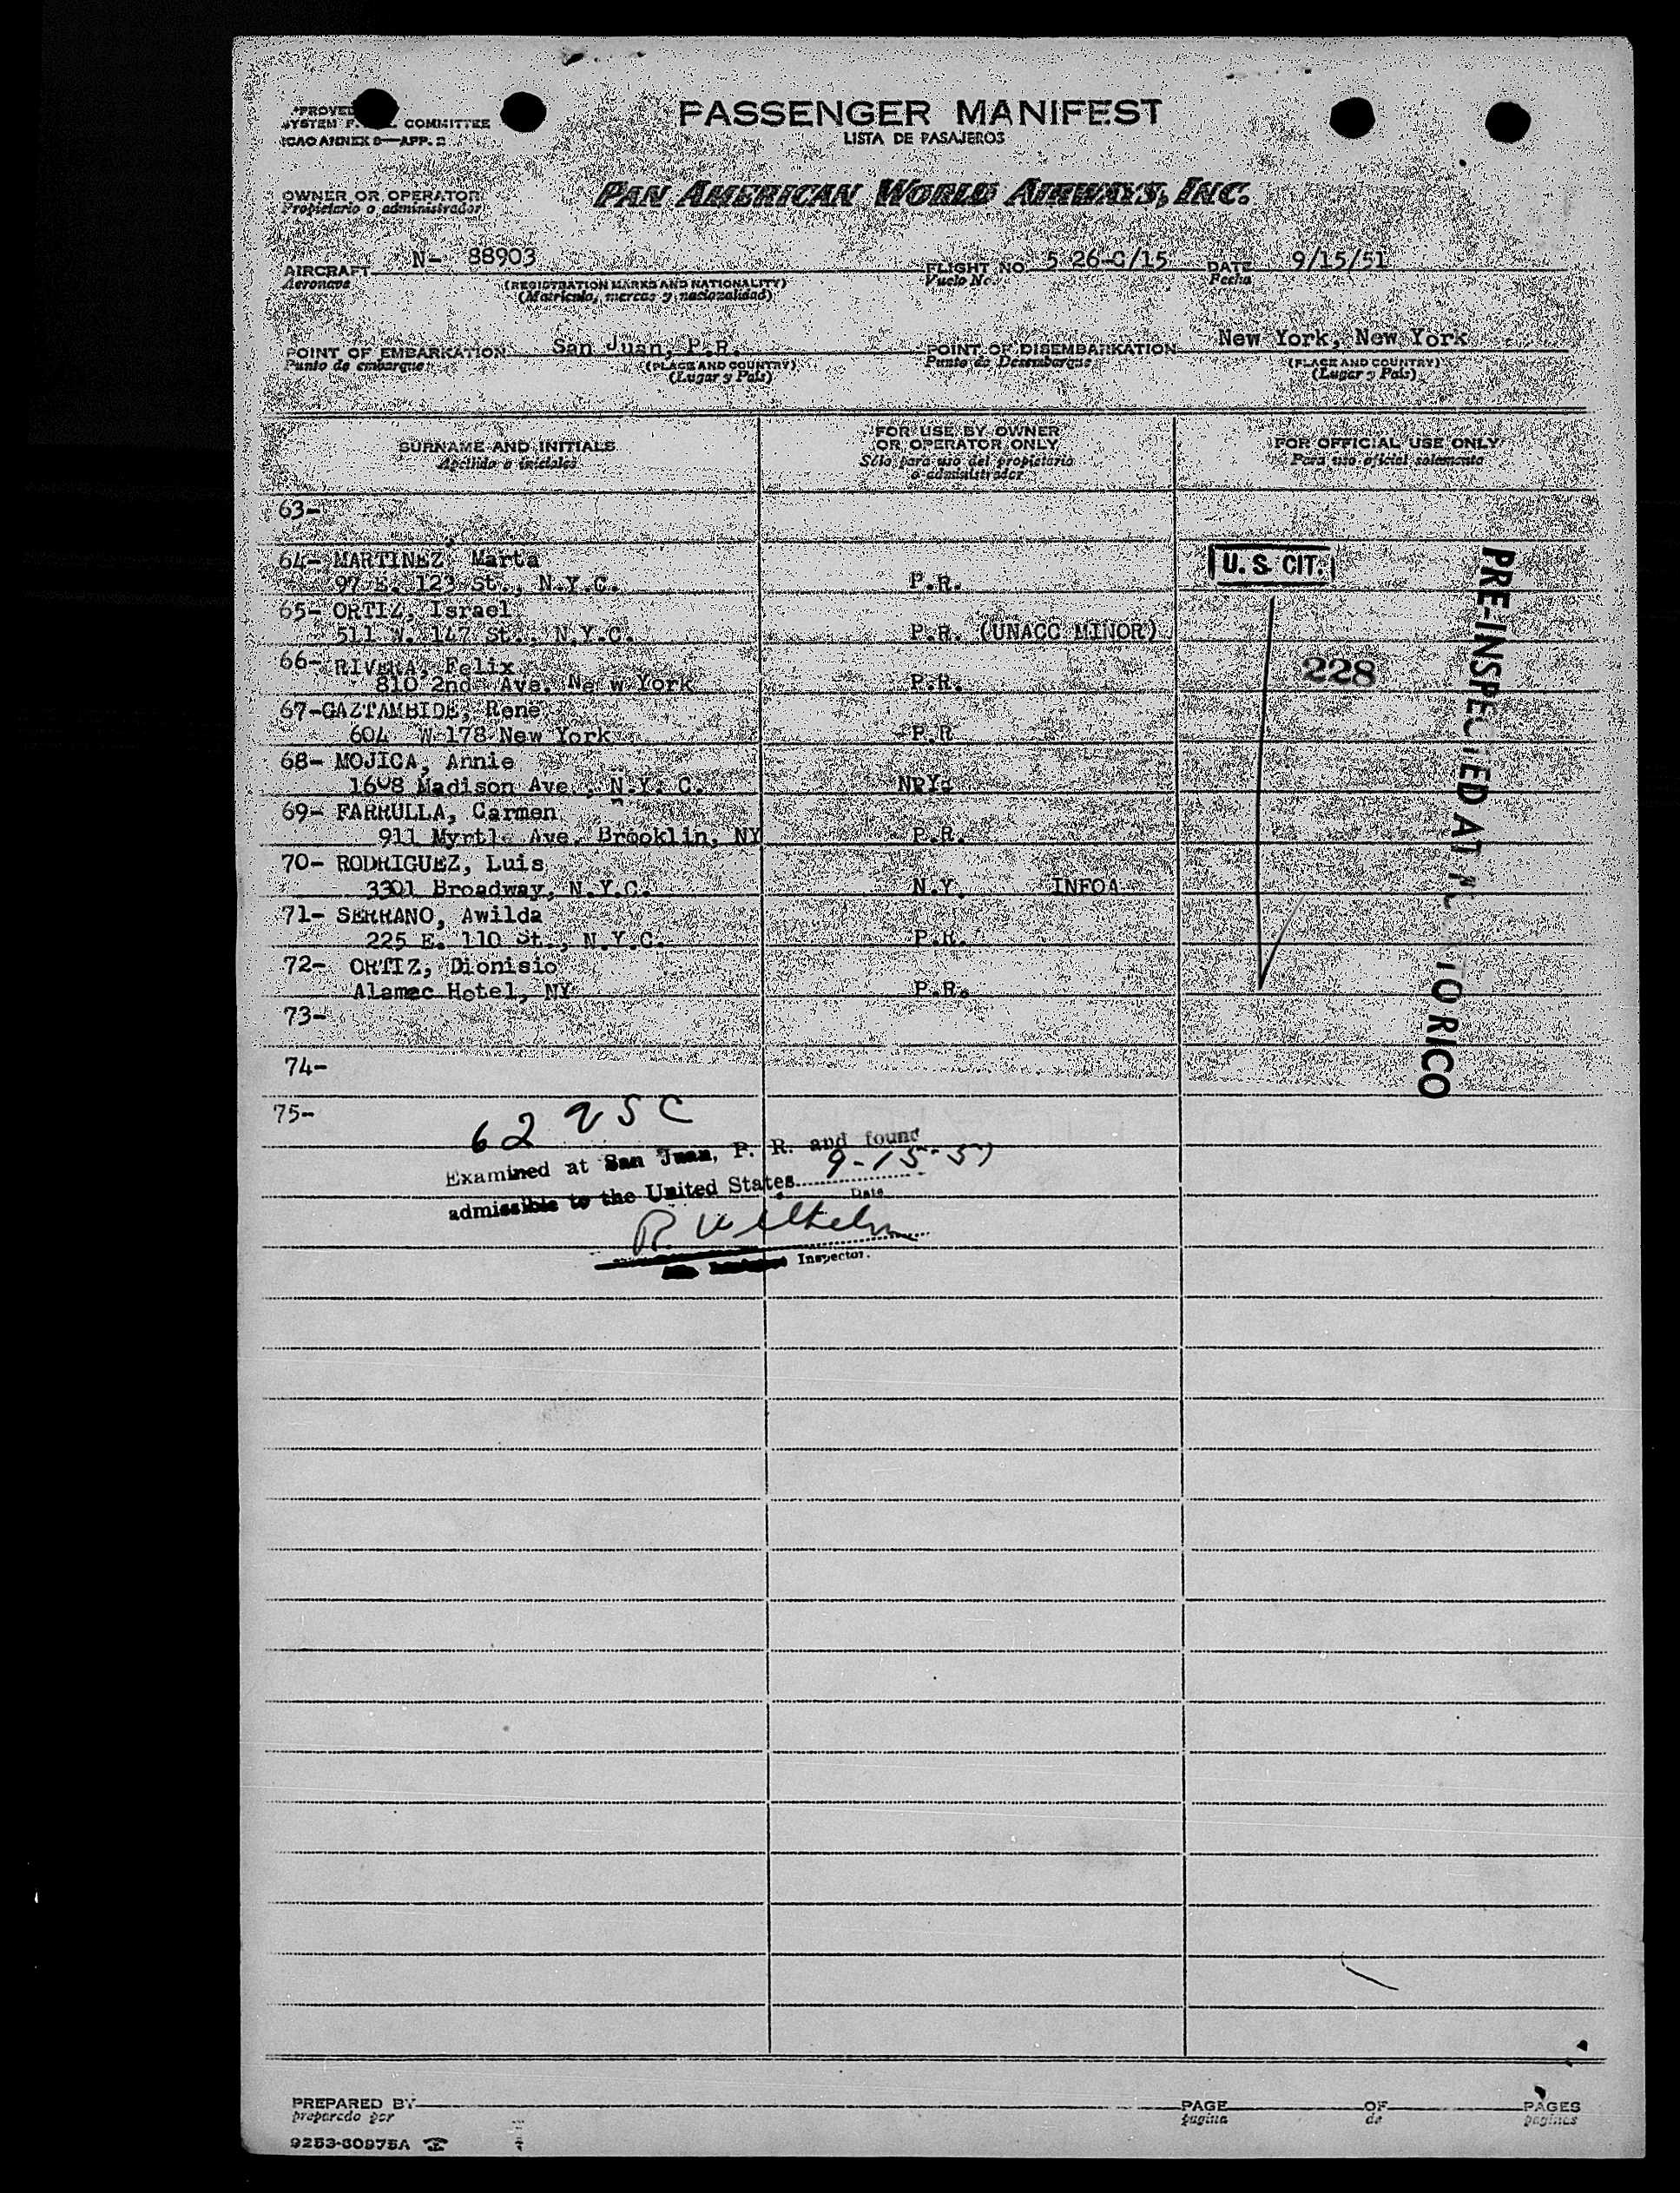 PASSENGER MANIFEST
LISTA DE PASAJEROS
COMMITTEE
ICAO ANNEX 9—APP. 2
OWNER OR OPERATOR
Propietario o administrador
PAN AMERICAN WORLD AIRWAYS, INC.
AIRCRAFT N- 88903 FLIGHT NO. 5 26-C/15 DATE 9/15/51
Aeronave (REGISTRATION MARKS AND NATIONALITY) Vuelo No. Fecha
(Matricula, marcas y nacionalidad)
POINT OF EMBARKATION San Juan, P.R. POINT OF DISEMBARKATION New York, New York
Punto de embarque (PLACE AND COUNTRY) Punto de Desembarque (PLACE AND COUNTRY)
(Lugar y Pais) (Lugar y Pais)
SURNAME AND INITIALS FOR USE BY OWNER OR OPERATOR ONLY FOR OFFICIAL USE ONLY
Apellido e iniciales Sólo para uso del propietario o administrador Para uso oficial solamente
63-
64- MARTINEZ, Marta
97 E. 123 St., N.Y.C. P.R. U. S. CIT.
65- ORTIZ, Israel
511 W. 147 St., N.Y.C. P.R. (UNACC MINOR)
66- RIVERA, Felix
810 2nd Ave. New York P.R. 228
67-GAZTAMBIDE, Rene
604 W 178 New York P.R
68- MOJICA, Annie
1608 Madison Ave., N.Y. C.
69- FARRULLA, Carmen
911 Myrtle Ave. Brooklin, NY P.R.
70- RODRIGUEZ, Luis
3301 Broadway, N.Y.C. N.Y. INFOA
71- SERRANO, Awilda
225 E. 110 St., N.Y.C. P.R.
72- ORTIZ, Dionisio
Alamac Hotel, NY P.R.
73-
74-
75-
PRE-INSPECTED AT RICO
62 USC
Examined at San Juan, P. R. and found
admissible to the United States 9-15-51
Date
R Wilhelm
Inspector.
PREPARED BY PAGE OF PAGES
preparado por pagina de paginas
9253-60975A